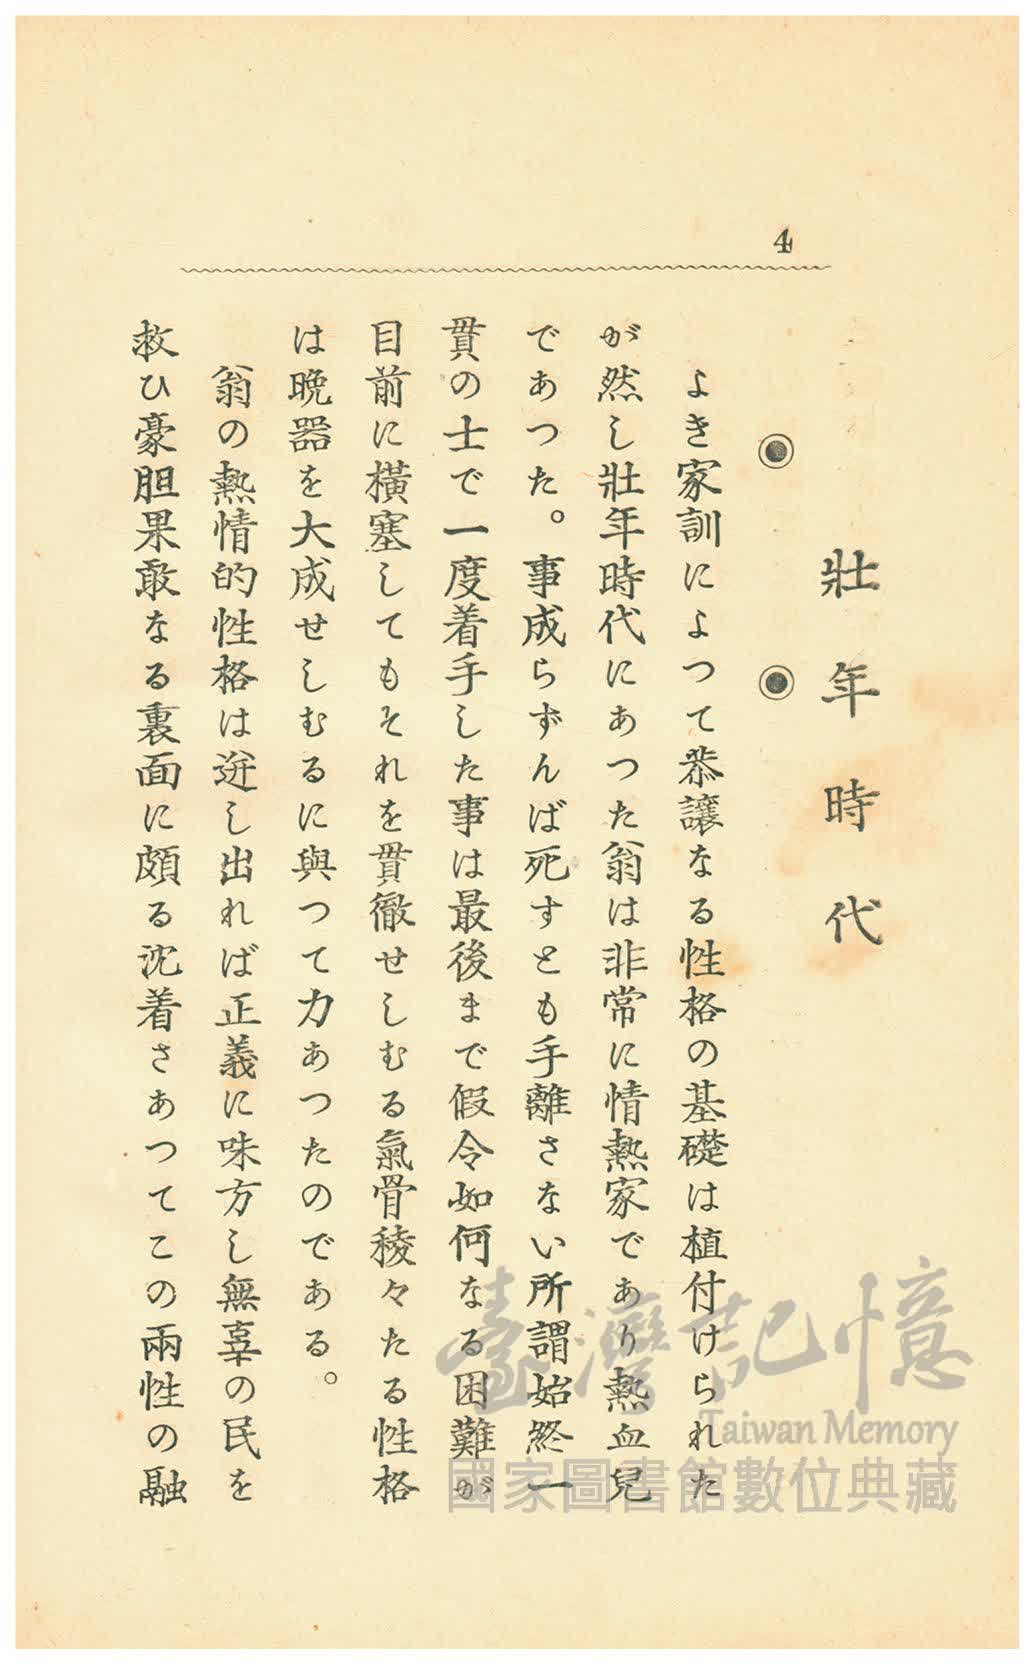 4
壯年時代
◉ ◉
よき家訓によつて恭讓なる性格の基礎は植付けられた
が然し壯年時代にあつた翁は非常に情熱家であり熱血兒
であつた。事成らずんば死すとも手離さない所謂始終一
貫の士で一度着手した事は最後まで假令如何なる困難が
目前に橫塞してもそれを貫徹せしむる氣骨稜々たる性格
は晩器を大成せしむるに與つて力あつたのである。
翁の熱情的性格は迸し出れば正義に味方し無辜の民を
救ひ豪胆果敢なる裏面に頗る沈着さあつてこの兩性の融
臺灣記憶
Taiwan Memory
國家圖書館數位典藏